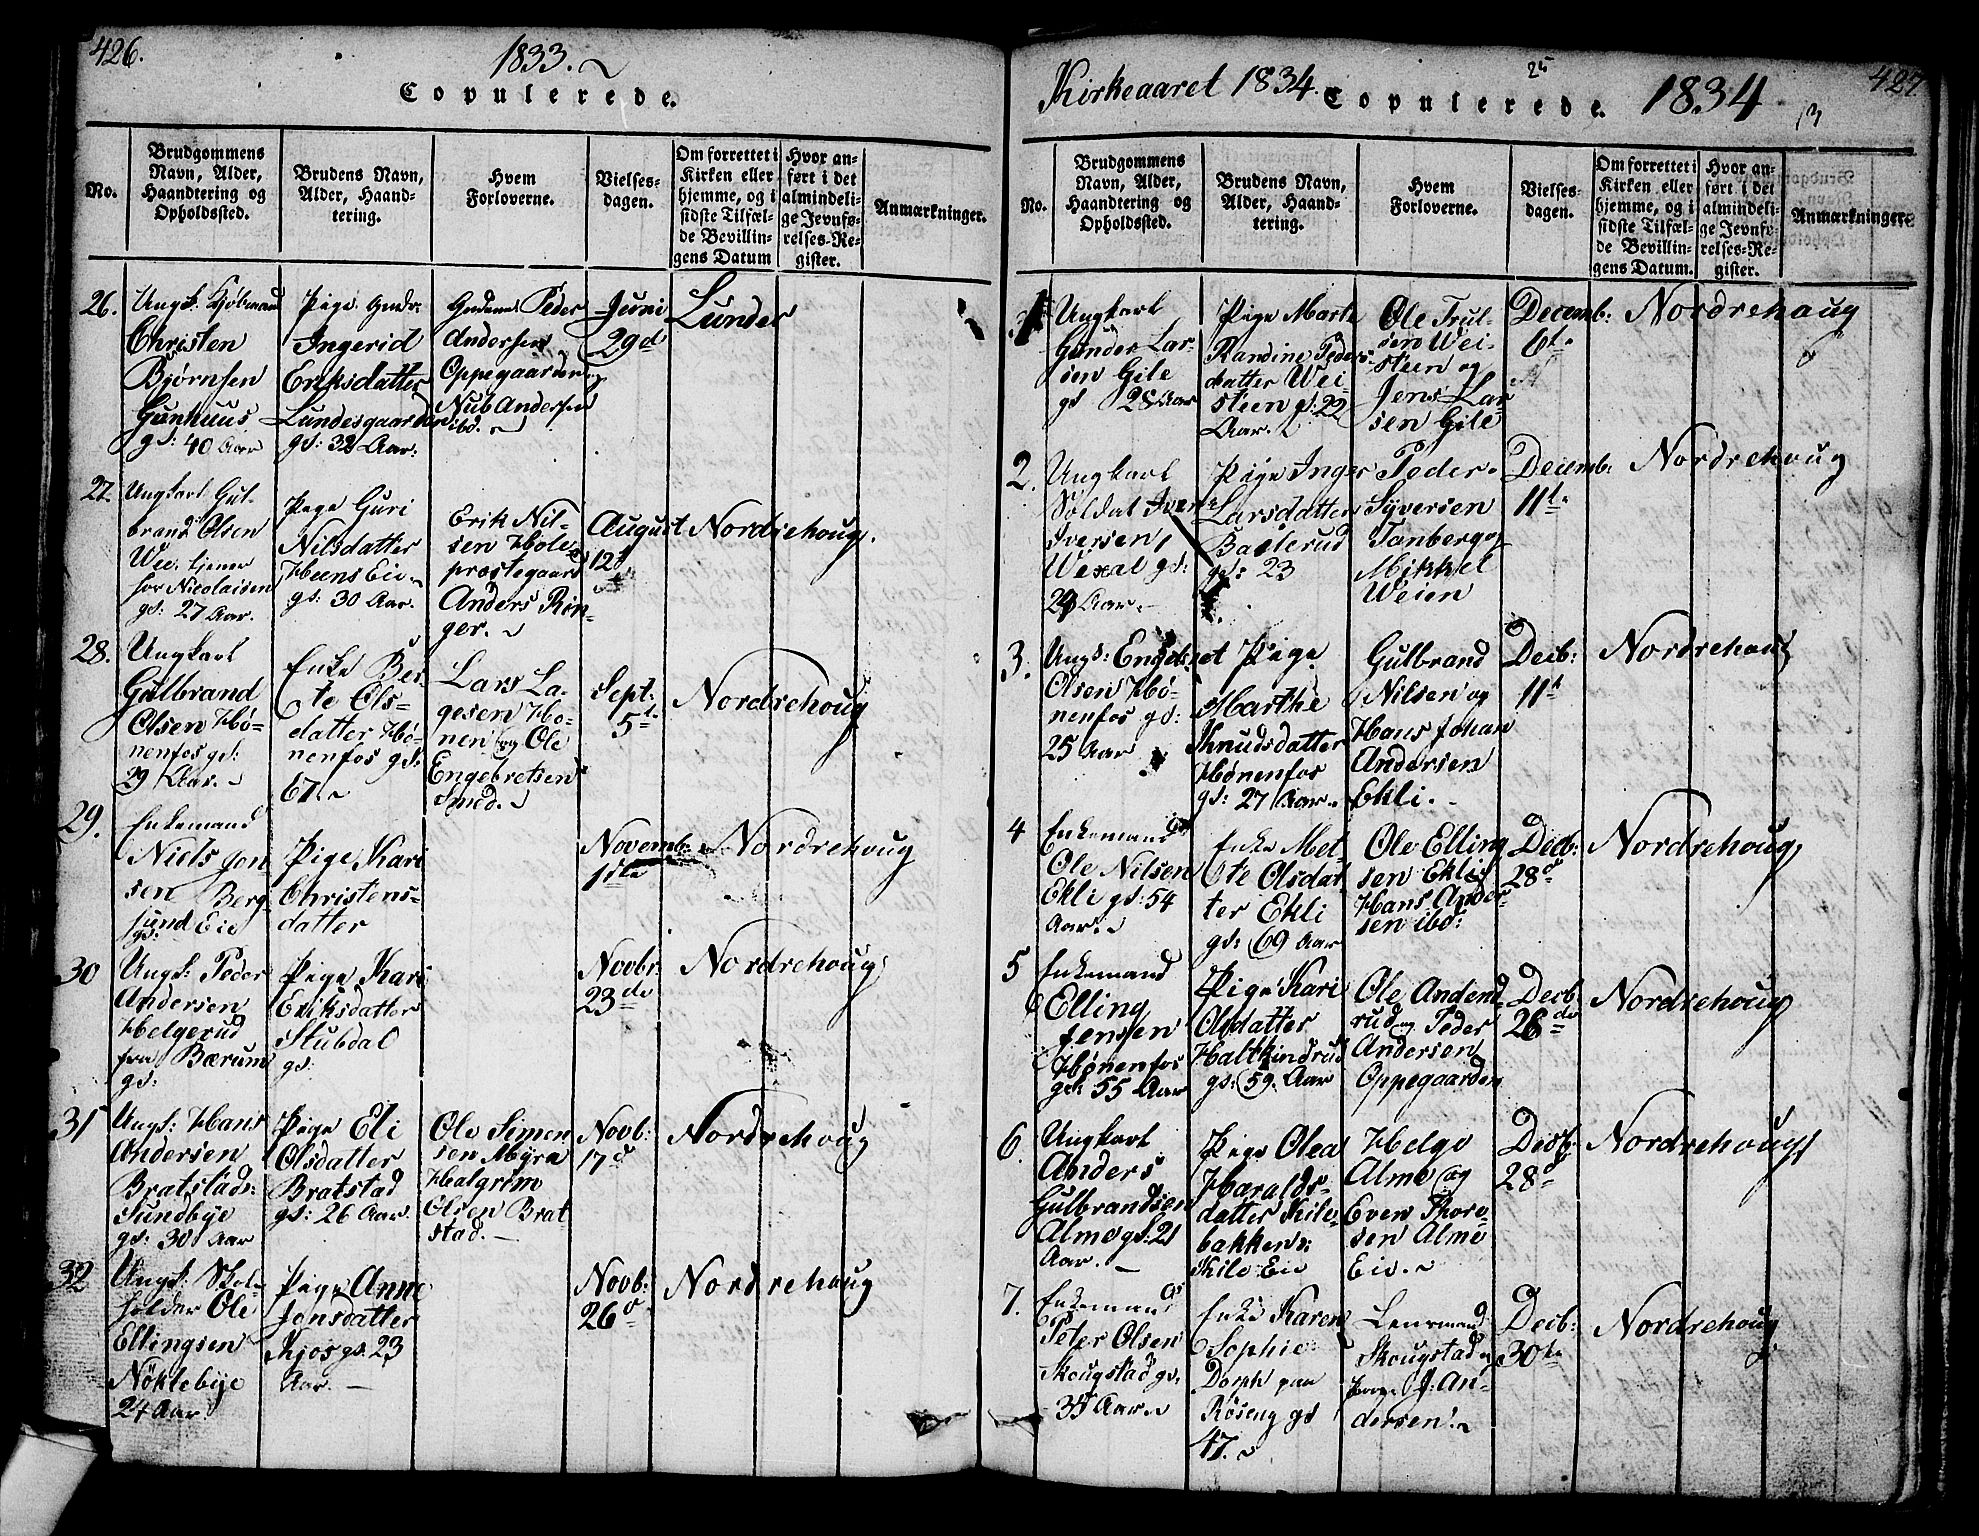 426.
1833.
Copulerede.
No.
Brudgommens
Navn, Alder,
Haandtering og
Opholdssted.
Brudens Navn,
Alder, Haand-
tering.
Hvem
Forloverne.
Vielses-
dagen.
Om forrettet i
Kirken eller
hjemme, og i
sidste Tilfæl-
de Bevillin-
gens Datum
Hvor an-
ført i det
almindeli-
ge Jevnfø-
relses-Re-
gister.
Anmærkninger.
26.
Christen
Bjørnsen
Gunhuus
gs: 40 Aar
Pige
Ingerid
Eriksdatter
Lundesgaarden
gs: 32 Aar.
Peder
Andersen
Oppegaarden
Nub Andersen
ibd.
Juni
29d
Lunder
27.
Ungkarl Gul-
brand Olsen
Wee, tjener
hos Nicolaisen
gs: 27 Aar.
Pige Guri
Nilsdatter
Heens Eie
gs: 30 Aar.
Erik Nil-
sen Hole
prostegaard
Anders Rin-
ger.
August
12t
Nordrehoug.
28.
Ungkarl
Gulbrand
Olsen Hø-
nenfos gs:
29 Aar.
Enke Ber-
te Ols-
datter Hø-
nenfos gs:
67.
Lars La-
gesen Ho-
nen og Ole
Engebretsen
Smed.
Sept.
5t
Nordrehoug
29.
Enkemand
Niels Jen
sen Berg-
sund Eie
gs:
Pige Kari
Christens-
datter
Novemb:
1ste
Nordrehoug
30
Ungk: Peder
Andersen
Helgerud
fra Bærum
gs:
Pige Kari
Eriksdatter
Stubdal
gs:
Novbr.
23de
Nordrehoug
31
Ungk: Hans
Andersen
Bratstads:
Sundbye
gs: 30 Aar
Pige Eli
Olsdatter
Bratstad
gs: 26 Aar.
Ole Simen
sen Myra
Halgrim
Olsen Brat
stad.
Novb:
17d
Nordrehoug
32
Ungk: Skol-
holder Ole
Ellingsen
Nöklebye
24 Aar
Pige Anne
Jensdatter
Kjos gs. 23
Aar.
Novb:
26d
Nordrehoug
Kirkeaaret 1834.
Copulerede.
25
1834
427
No.
Brudgommens
Navn, Alder,
Haandtering og
Opholdssted.
Brudens Navn,
Alder, Haand-
tering.
Hvem
Forloverne.
Vielses-
dagen.
Om forrettet i
Kirken eller
hjemme, og i
sidste Tilfæl-
de Bevillin-
gens Datum.
Hvor an-
ført i det
almindeli-
ge Jevnfø-
relses-Re-
gister.
Anmærkninger.
1
Ungkarl
Gunder Lar-
sen Gile
gs 28 Aar
Pige Marte
Randine Peders
datter Wei-
steen gs: 22
Aar.
Ole Trul-
sen Wei-
steen og
Jens Lar
sen Gile
Decemb:
6t
Nordrehoug
2.
Ungkarl
Soldat Iver
Iversen,
Wexal gs:
29 Aar.
Pige Inger
Larsdatter
Bagerud
gs: 23
Peder
Syversen
Tanberg og
Mikkel
Weien
Decemb:
11t
Nordrehoug
3.
Ungk: Engebret
Olsen Hø-
nenfos gs:
25 Aar
Pige
Marthe
Knudsdatter
Hønenfos
gs: 27 Aar.
Gulbrand
Nilsen og
Hans Johan
Andersen
Ekli.
Decb:
11t
Nordrehoug
4
Enkemand
Ole Nilsen
Ekli gs: 54
Aar.
Enke Met-
te Olsdat
ter Ekli
gs: 69 Aar
Ole Elling
sen Ekli
Hans Ander
sen ibd:
Decb:
28d
Nordrehoug
5
Enkemand
Elling
Jensen
Hønenfos
gs: 55 Aar
Pige Kari
Olsdatter
Halkindrud
gs: 59. Aar
Ole Andend
rud og Peder
Andersen
Oppegaarden
Decb:
28de
Nordrehoug
6.
Ungkarl
Anders
Gulbrandsen
Alme gs: 21
Aar.
Pige Olea
Haralds-
datter Kile-
bakkens:
Kile Eie
Helge
Alme og
Even Thore-
sen Alme
Eie.
Decb.
28d
Nordrehoug
7.
Enkemand
Peter Olsen
Skougstad gs.
35 Aar.
Enke Karen
Sophie
Dorph paa
Röseng gs
47.
Lensmand
Skougstad
J: An-
dersen.
Decb:
30te
Nordrehoug